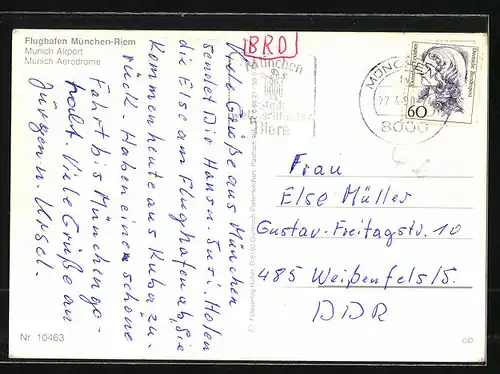 Flughafen München-Riem
Munich Airport
Munich Aerodrome
BRD
München
Stadt
Biere
MÜNCHEN
8000
Deutsche Bundespost
60
Viele Grüße aus München
sendet Dir Hans u. Susi. Holen
die Else am Flughafen ab. Sie
kommen heute aus Kuba zu-
rück. Haben eine schöne
Fahrt bis München ge-
habt. Viele Grüße an
Jürgen u. Ursel.
Frau
Else Müller
Gustav-Freitagstr. 10
485 Weißenfels/S.
DDR
Nr. 10463